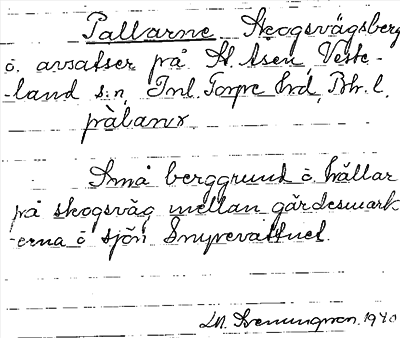 Pallarne Skogsvägsberg
o. avsatser på St. Åsen, Väste-
-land s:n, Inl. Torpe hd, Bh. l.
pàlanɤ
Små berggrund o. hällar
på skogsväg mellan gärdesmark-
-erna o sjön Snyrevattnet.
1940